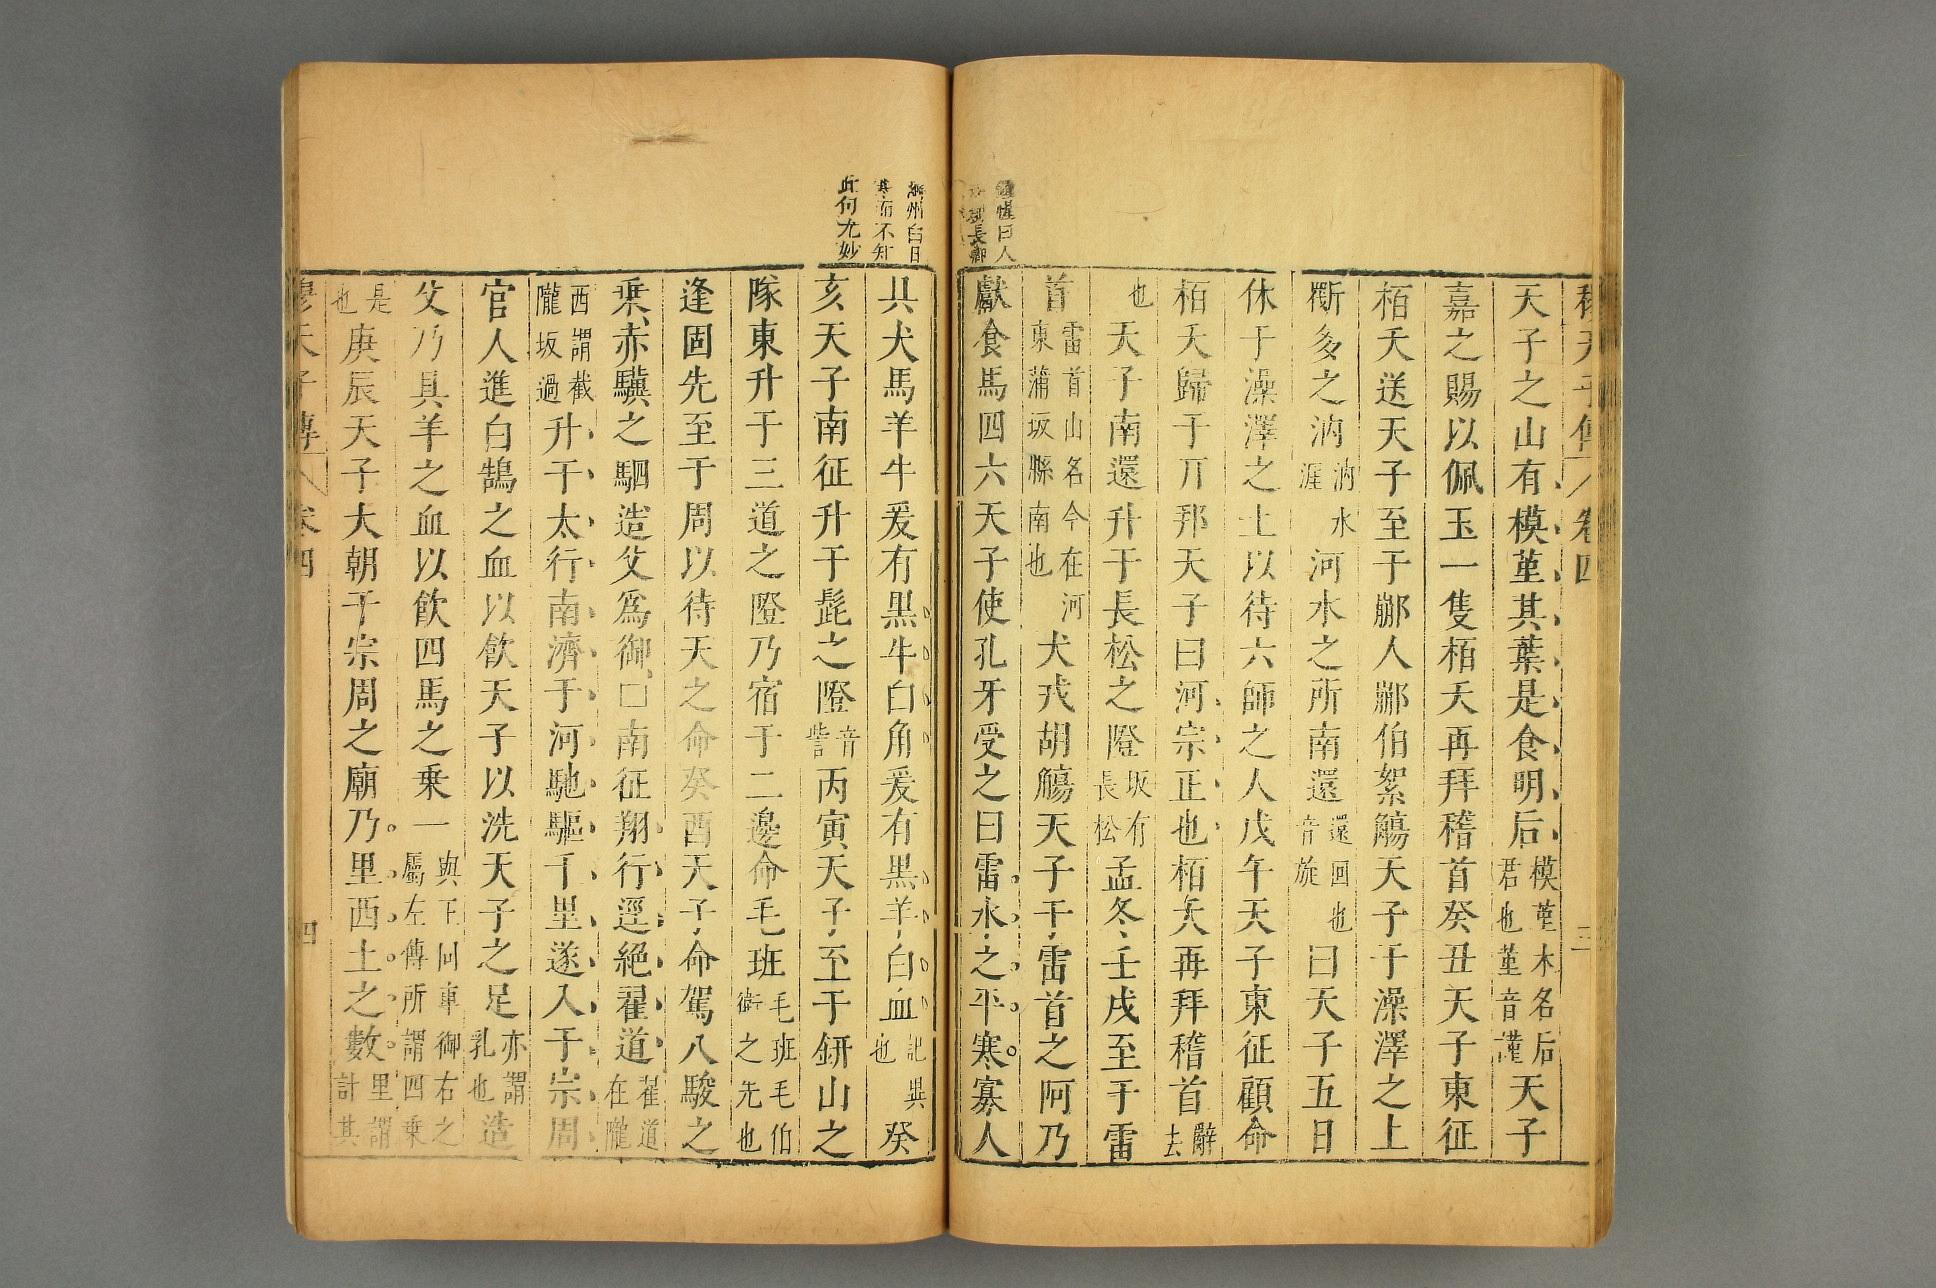 穆天子傳 卷四 三
天子之山有模堇其葉是食明后模堇木名后君也堇音謹天子
嘉之賜以佩玉一隻栢夭再拜稽首癸丑天子東征
栢夭送天子至于䣙人䣙伯絮觴天子于澡澤之上
斲多之汭汭水涯河水之所南還還回也音旋曰天子五日
休于澡澤之上以待六師之人戊午天子東征顧命
栢夭歸于丌邦天子曰河宗正也栢夭再拜稽首辭去
也天子南還升于長松之隥坂有長松孟冬壬戌至于雷
首雷首山名今在河東蒲坂縣南也犬戎胡觴天子于雷首之阿乃
獻食馬四六天子使孔牙受之曰雷水之平寒寡人
惟曰人
長卿
州白日
其而不知
此何尤妙
具犬馬羊牛爰有黑牛白角爰有黑羊白血記異也癸
亥天子南征升于髭之隥音訾丙寅天子至于鈃山之
隊東升于三道之隥乃宿于二邊命毛班毛班毛伯衛之先也
逢固先至于周以待天之命癸酉天子命駕八駿之
乗赤驥之駟造父爲御□南征翔行逕絕翟道翟道在隴
西謂截隴坂過升于太行南濟于河馳驅千里遂入于宗周
官人進白鵠之血以飲天子以洗天子之足亦謂乳也造
父乃具羊之血以飲四馬之乗一與王同車御右之屬左傳所謂四乗
是也庚辰天子大朝于宗周之廟乃里西土之數里謂計其
穆天子傳 卷四 四